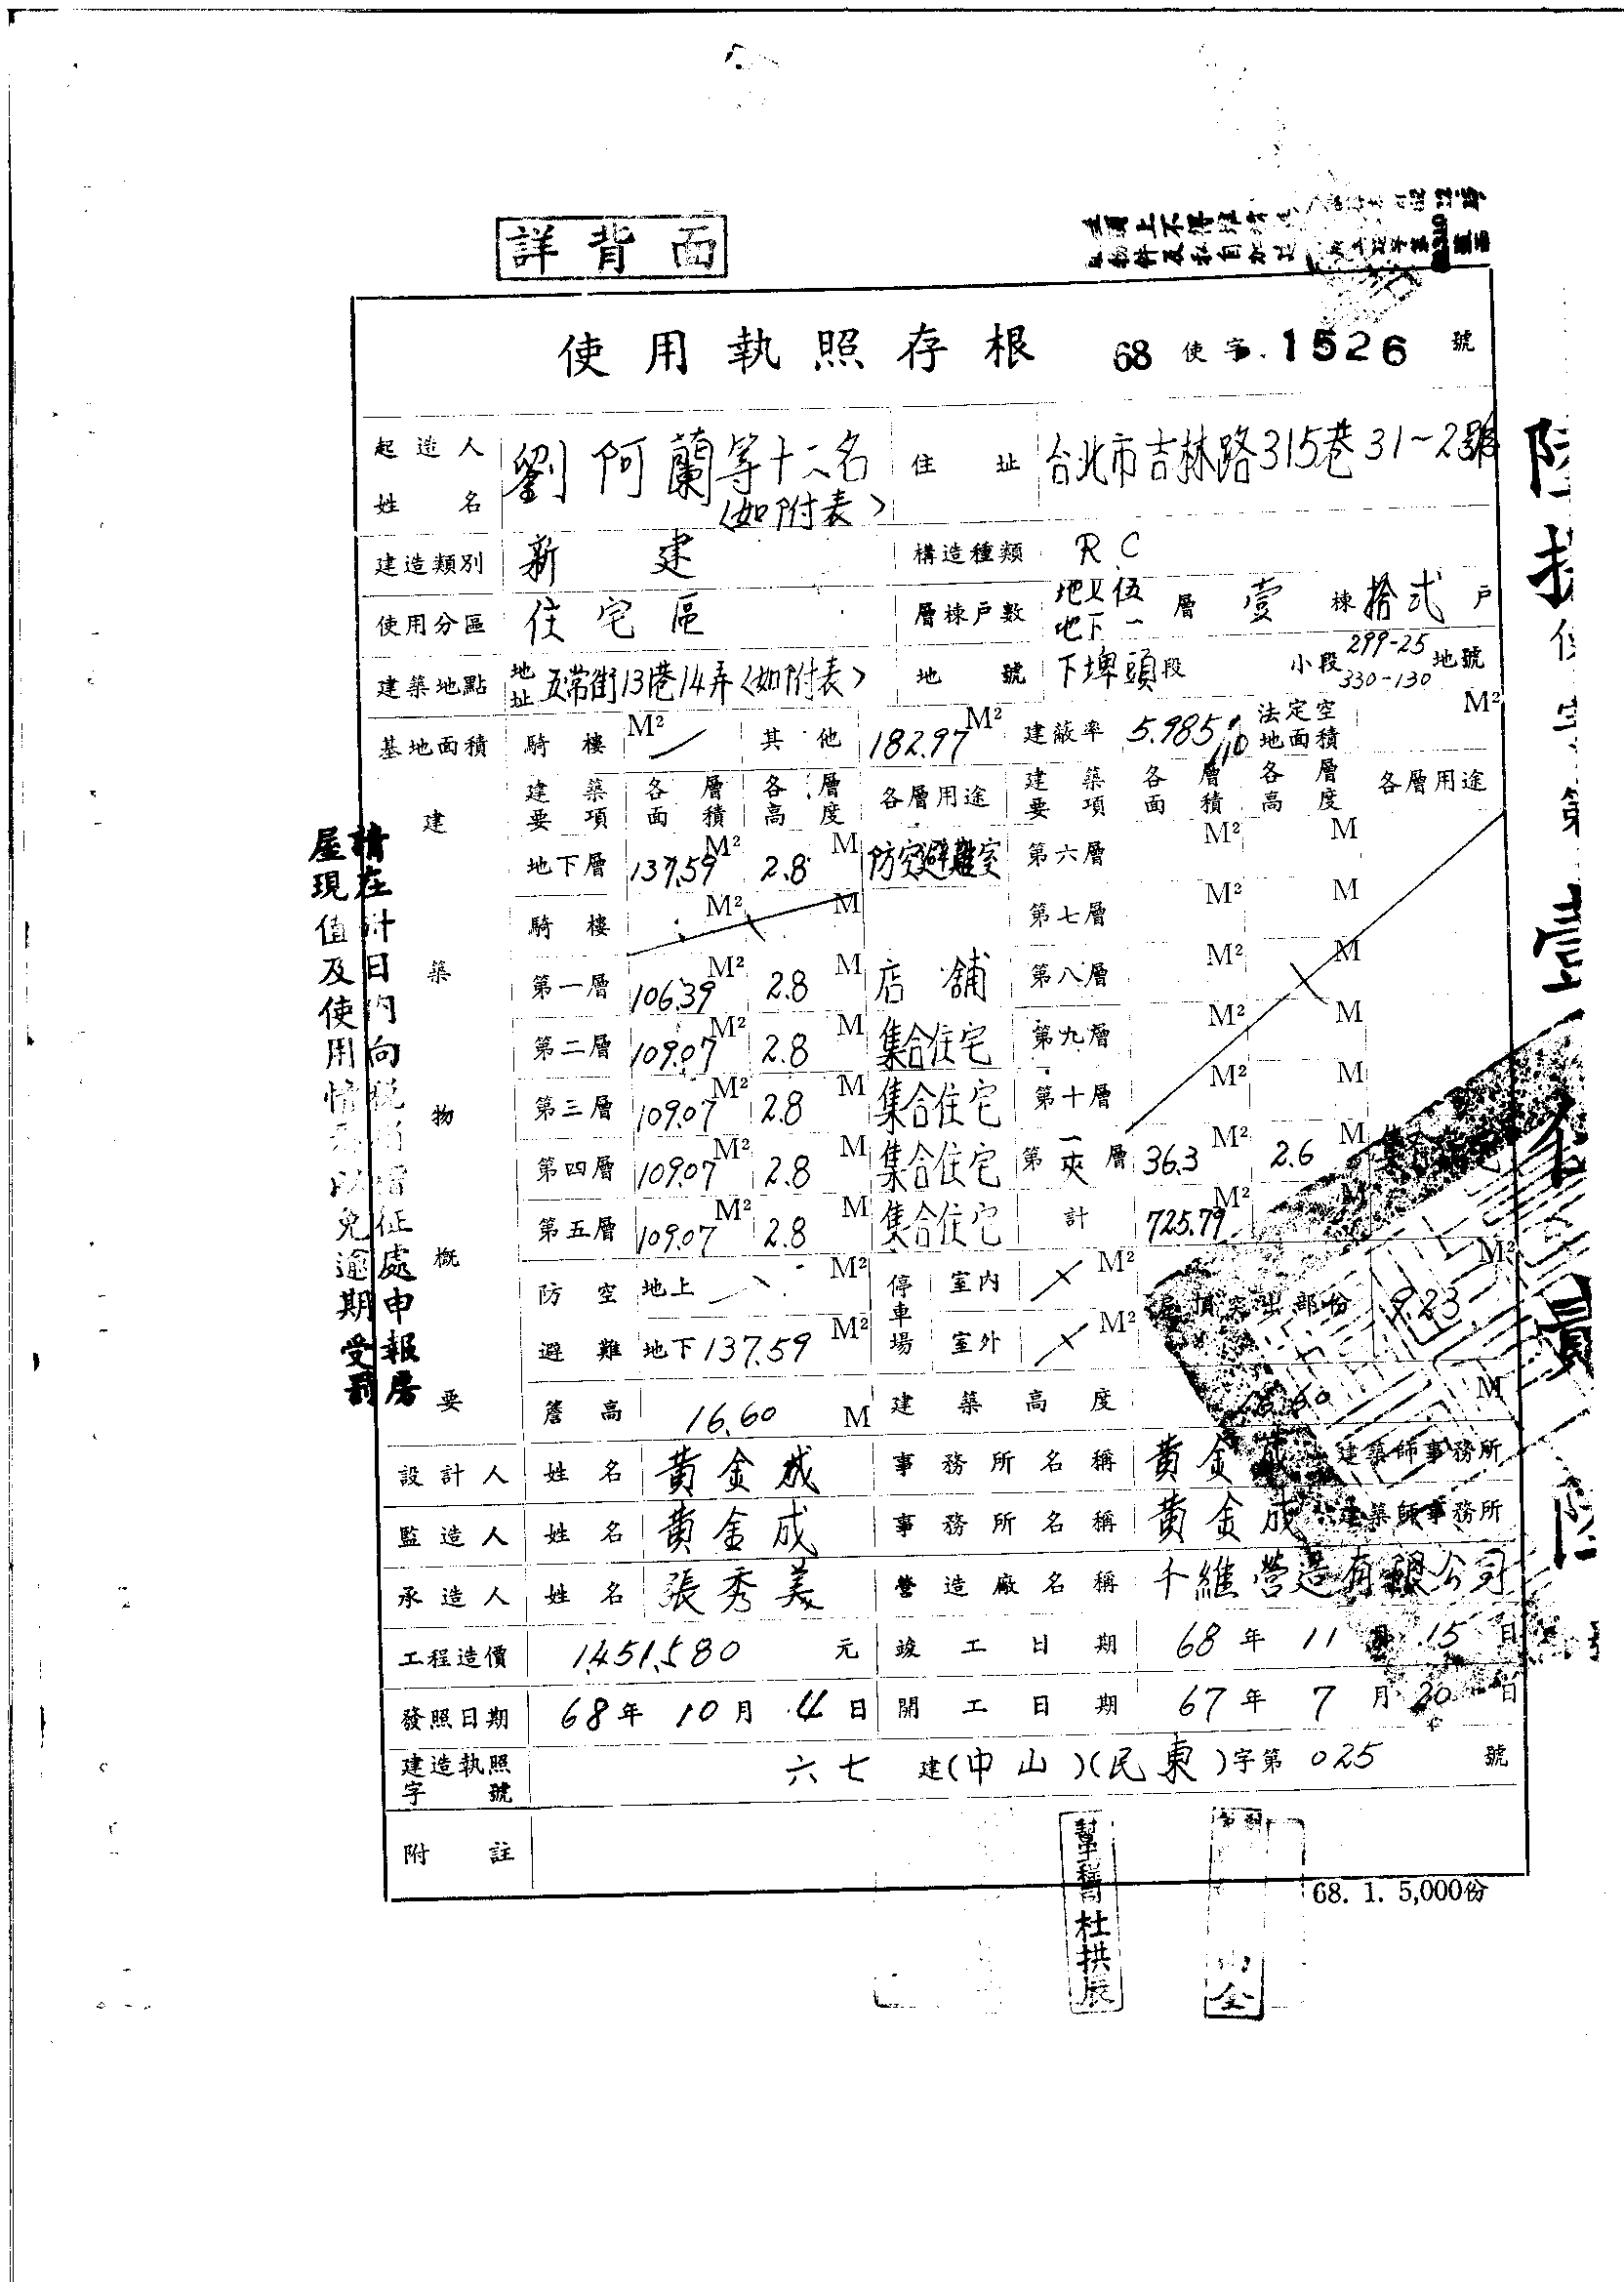 詳背面
使用執照存根 68 使字.1526 號
起造人姓名 劉阿蘭等十二名〈如附表〉 住址 台北市吉林路315巷31~2號
建造類別 新建 構造種類 R.C
使用分區 住宅區 層棟戶數 地上伍 地下一 層 壹 棟 拾弍 戶
建築地點 地址 五常街13巷14弄〈如附表〉 地號 下埤頭段 小段 299-25 330-130 地號
基地面積 騎樓 M² 其他 182.97 M² 建蔽率 法定空地面積 M²
建築物概要 建築要項 各層面積 各層高度 各層用途 建築要項 各層面積 各層高度 各層用途
地下層 137.59 M² 2.8 M 防空避難室 第六層 M² M
騎樓 M² M 第七層 M² M
第一層 106.39 M² 2.8 M 店舖 第八層 M² M
第二層 109.07 M² 2.8 M 集合住宅 第九層 M² M
第三層 109.07 M² 2.8 M 集合住宅 第十層 M² M
第四層 109.07 M² 2.8 M 集合住宅 第一夾層 36.3 M² 2.6 M
第五層 109.07 M² 2.8 M 集合住宅 計 725.79 M² M
防空避難 地上 M² 停車場 室內 M² 屋頂突出部份 9.23 M²
地下 137.59 M² 室外 M²
簷高 16.60 M 建築高度 M
設計人 姓名 黃金成 事務所名稱 黃金成 建築師事務所
監造人 姓名 黃金成 事務所名稱 黃金成 建築師事務所
承造人 姓名 張秀美 營造廠名稱 千維營造有限公司
工程造價 1,451,580 元 竣工日期 68年11月15日
發照日期 68年10月4日 開工日期 67年7月20日
建造執照字號 六七 建(中山)(民東)字第 025 號
附註
68. 1. 5,000份
杜拱辰